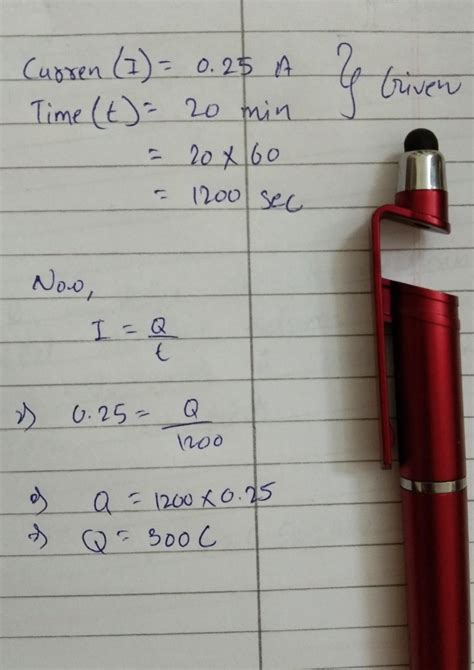 Curren (I) = 0.25 A
Time (t) = 20 min
= 20 × 60
= 1200 sec
} Given
Now,
I = Q/t
⇒ 0.25 = Q/1200
⇒ Q = 1200 × 0.25
⇒ Q = 300 C